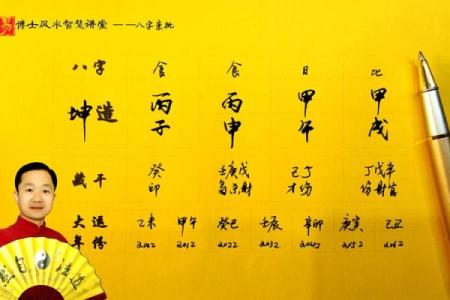 易 博士风水智慧讲堂 ——八字亲批
八字 食 食 日 比
坤造 丙子 丙申 甲午 甲戌
藏干 癸 壬庚戊 己丁 丁戊辛
印 枭杀财 才伤 伤财官
大运 乙未 甲午 癸巳 壬辰 辛卯 庚寅 己丑
年份 2002 2012 2022 2032 2042 2052 2062